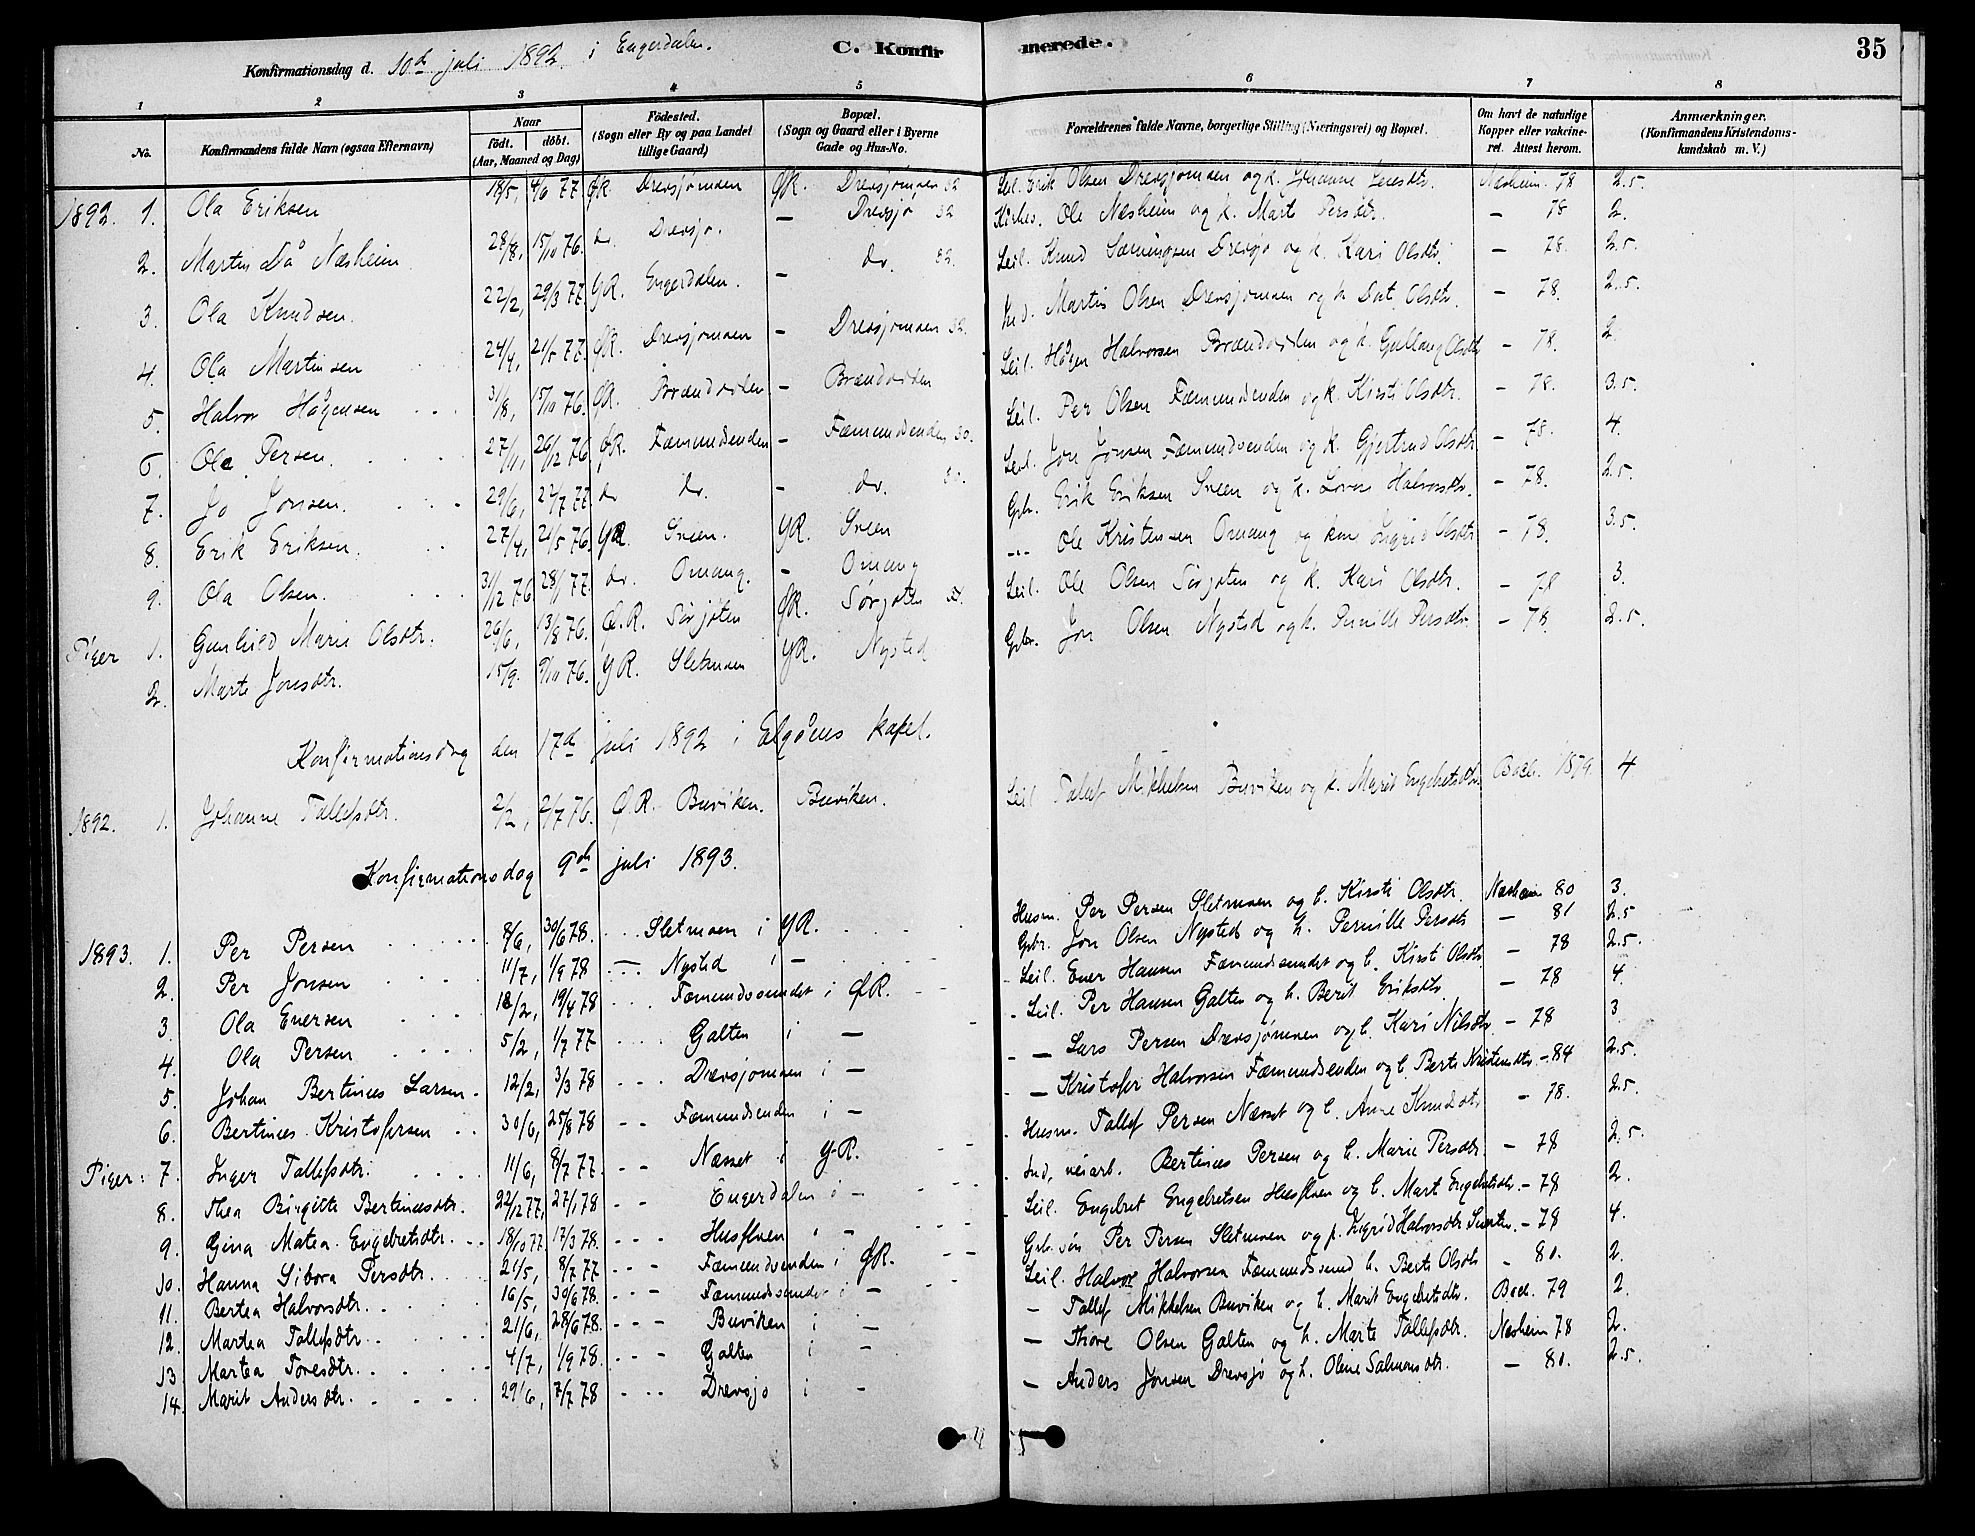 Konfirmationsdag d. 10de juli 1892 i Engerdalen. C. Konfirmerede. 35
1 2 3 4 5 6 7 8
No. Konfirmandens fulde Navn (ogsaa Efternavn) Naar födt. döbt. (Aar, Maaned og Dag) Födested. (Sogn eller By og paa Landet tillige Gaard) Bopæl. (Sogn og Gaard eller i Byerne Gade og Hus-No. Forældrenes fulde Navne, borgerlige Stilling (Næringsvei) og Bopæl. Om havt de naturlige Kopper eller vakcineret. Attest herom. Anmærkninger. (Konfirmandens Kristendomskundskab m. V.)
1892. 1. Ola Eriksen 18/5, 4/6 77 ØR Drevsjømoen ØR. Drevsjømoen 32 Leil. Erik Olsen Drevsjømoen og k. Johanne Næsheim. 78 2.5.
2. Martin Då Næsheim 28/8, 15/10 76. do. Drevsjø. — Drevsjø 32 Kirkes. Ole Næsheim og k. Mart Persdtr. — 78 2.
3. Ola Knudsen. 22/2, 29/3 77. YR. Engerdalen. — do. 32. Leil. Knud Sæmingsen Drevsjø og k. Kari Olsdtr. — 78. 2.5.
4. Ola Martinsen 24/4, 21/5 77. ØR. Drevsjømoen — Drevsjømoen 32. Ind. Martin Olsen Drevsjømoen og k. Dort Olsdtr. — 78. 2.5.
5. Halvor Hågensen 31/8, 15/10 76. ØR. Brændvolden — Brændvolden Leil. Hågen Halvorsen Brændvolden og k. Gullaug Olsdtr — 78. 2
6. Ole Persen. 27/11, 26/12 76 ØR. Fæmundsenden — Fæmundsenden 30. Leil. Per Olsen Fæmundsenden og k. Kirsti Olsdtr. — 78. 3.5.
7. Jo Jonsen. 29/6, 22/7 77. do do. — do. Leil. Jon Jonsen Fæmundsenden og k. Gjertrud Olsdtr — 78. 4.
8. Erik Eriksen. 27/4, 21/5 76. YR. Sveen. YR. Sveen Gbr. Erik Eriksen Sveen og k. Halvorsdtr. — 78. 2.5.
9. Ola Olsen. 31/12 76 28/1 77. do. Omang. — Omang Ole Kristensen Omang og kone Ingrid Olsdtr — 78. 3.5.
Piger 1. Gunhild Marie Olsdtr. 26/6, 13/8 76. Ø.R. Sørjøten ØR. Sørjøten Leil. Ole Olsen Sørjøten og k. Kari Olsdtr. — 78 3.
2. Marte Jonsdtr. 15/9. 9/10 76. YR. Sletmoen YR. Nysted Gbr. Jon Olsen Nysted og k. Pernille Persdtr. — 78. 2.5.
Konfirmationsdag den 17de juli 1892 i Elgåens kapel.
1892. 1. Johanne Tallefsdtr. 2/2, 2/7 76. Ø.R. Buviken. Buviken. Leil Tallef Mikkelsen Buviken og k. Marit Engebretsdtr. 1879. 4
Konfirmationsdag 9de juli 1893.
1893. 1. Per Persen 8/6, 30/6 78. Sletmoen i YR. Husm. Per Persen Sletmoen og h. Kirsti Olsdtr. Næsheim 80 3.
2. Per Jonsen 11/7, 1/9 78 Nysted i — Gbr. Jon Olsen Nysted og h. Pernille Persdtr — 81 2.5
3. Ola Enersen 18/2, 19/4 78 Fæmundsundet i ØR. Leil. Ener Hansen Fæmundsundet og h. Kirsti Olsdtr. — 78 2.5.
4. Ola Persen 5/2, 1/7 77 Galten i — Leil. Per Hansen Galten og h. Berit Eriksdtr — 78 4.
5. Johan Bertinus Larsen. 12/2, 3/3 78 Drevsjømoen i — — Lars Persen Drevsjømoen og h. Kari Nilsdtr. — 78 3
6. Bertines Kristofersen 30/6, 25/8 78 Fæmundsenden i — — Kristofer Halvorsen Fæmundsenden og h. Berte Kristensdtr — 84 2.5.
Piger: 7. Inger Tallefsdtr. 11/6, 8/7 77. Næsset i Y.R. Husm. Tallef Persen Næsset og h. Anne Knudsdtr — 78. 2.5.
8. Thea Birgitte Bertinusdtr. 22/12 77, 27/1 78 Engerdalen i — Ind, veiarb. Bertines Persen og h. Marie Persdtr. — 78 2.5.
9. Gina Matea Engebretsdtr. 18/10 77. 17/3 78. Husfloen i — Leil. Engebret Engebretsen Husfloen og h. Mart Engebretsdtr. — 78 2.
10. Hanna Sibora Persdtr. 21/5, 8/7 77 Fæmundsenden i ØR. Gbr. søn Per Persen Sletmoen og p. Ingrid Halvorsdtr — 78 4.
11. Bertea Halvorsdtr. 16/5, 30/6 78. Fæmundsundet i — Leil. Halvor Halvorsen Fæmundssund h. Berte Olsdtr — 80. 2.
12. Martea Tallefsdtr. 21/6, 28/6 78. Buviken i — — Tallef Mikkelsen Buviken og h. Marit Engebretsdtr. 79 2.
13. Martea Toresdtr. 4/7, 1/9 78. Galten i — — Thore Olsen Galten og h. Marte Tallefsdtr. Næsheim 78 2.
14. Marit Andersdtr. 29/6, 7/7 78 Drevsjø i — — Anders Jonsen Drevsjø og h. Oline Salmonsdtr. — 80. 2.5.